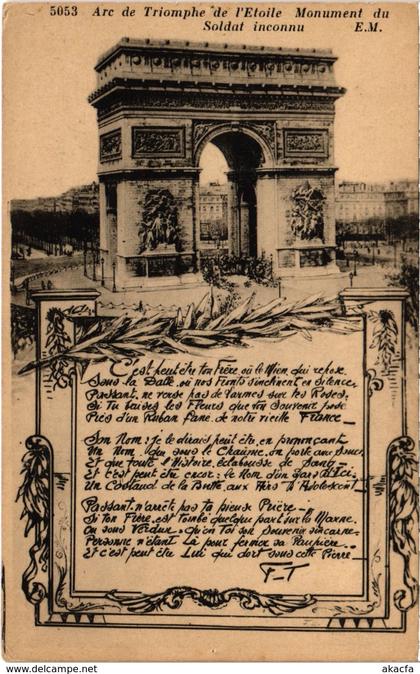 5053 Arc de Triomphe de l'Etoile Monument du
Soldat inconnu E.M.
C'est peut être ton Frère où le Mien, qui repose
Sous la Dalle, où nos Fronts s'inclinent en silence
Passant, ne verse pas de larmes sur les Roses,
Si Tu baises les Fleurs que ton Souvenir pose
Près d'un Ruban fané de notre vieille France
Son Nom: Je le dirais peut être, en prononçant
Un Nom, que sous le Chaume, on porte aux
Et que toute l'Histoire, éclabousse de Sang
Et c'est peut être encore le Nom d'un Gars d'Ici
Un Costaud de la Butte, aux Airs d'Adolescent
Passant n'arrête pas ta pieuse Prière
Si ton Frère est tombé quelque part sur la Marne
Ou sous Verdun qu'en Toi son souvenir s'incarne
Personne n'étant là pour fermer sa Paupière
Et c'est peut être Lui qui dort sous cette Pierre
F-T
www.delcampe.net
akacfa